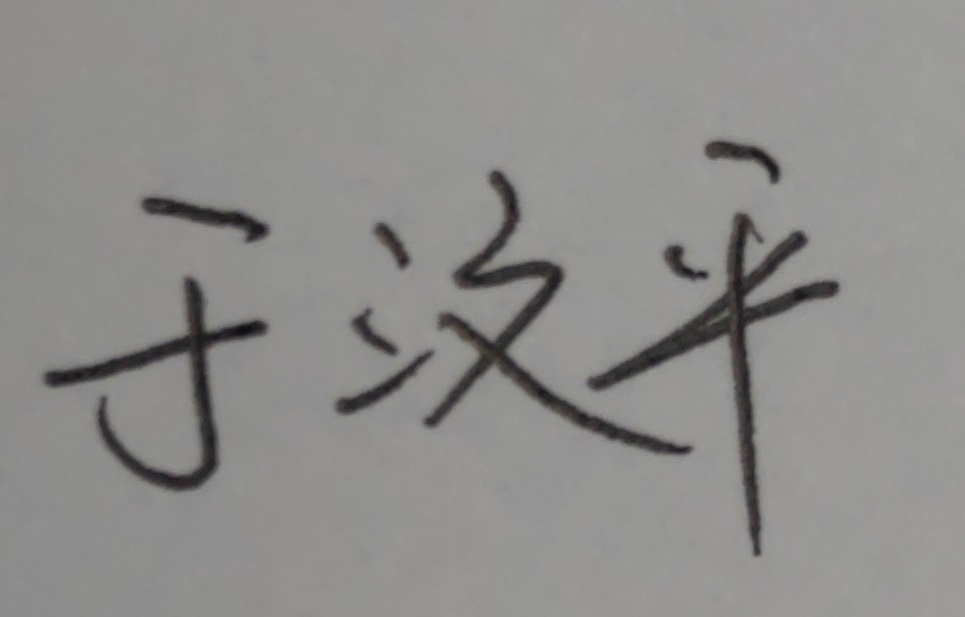 于汶平